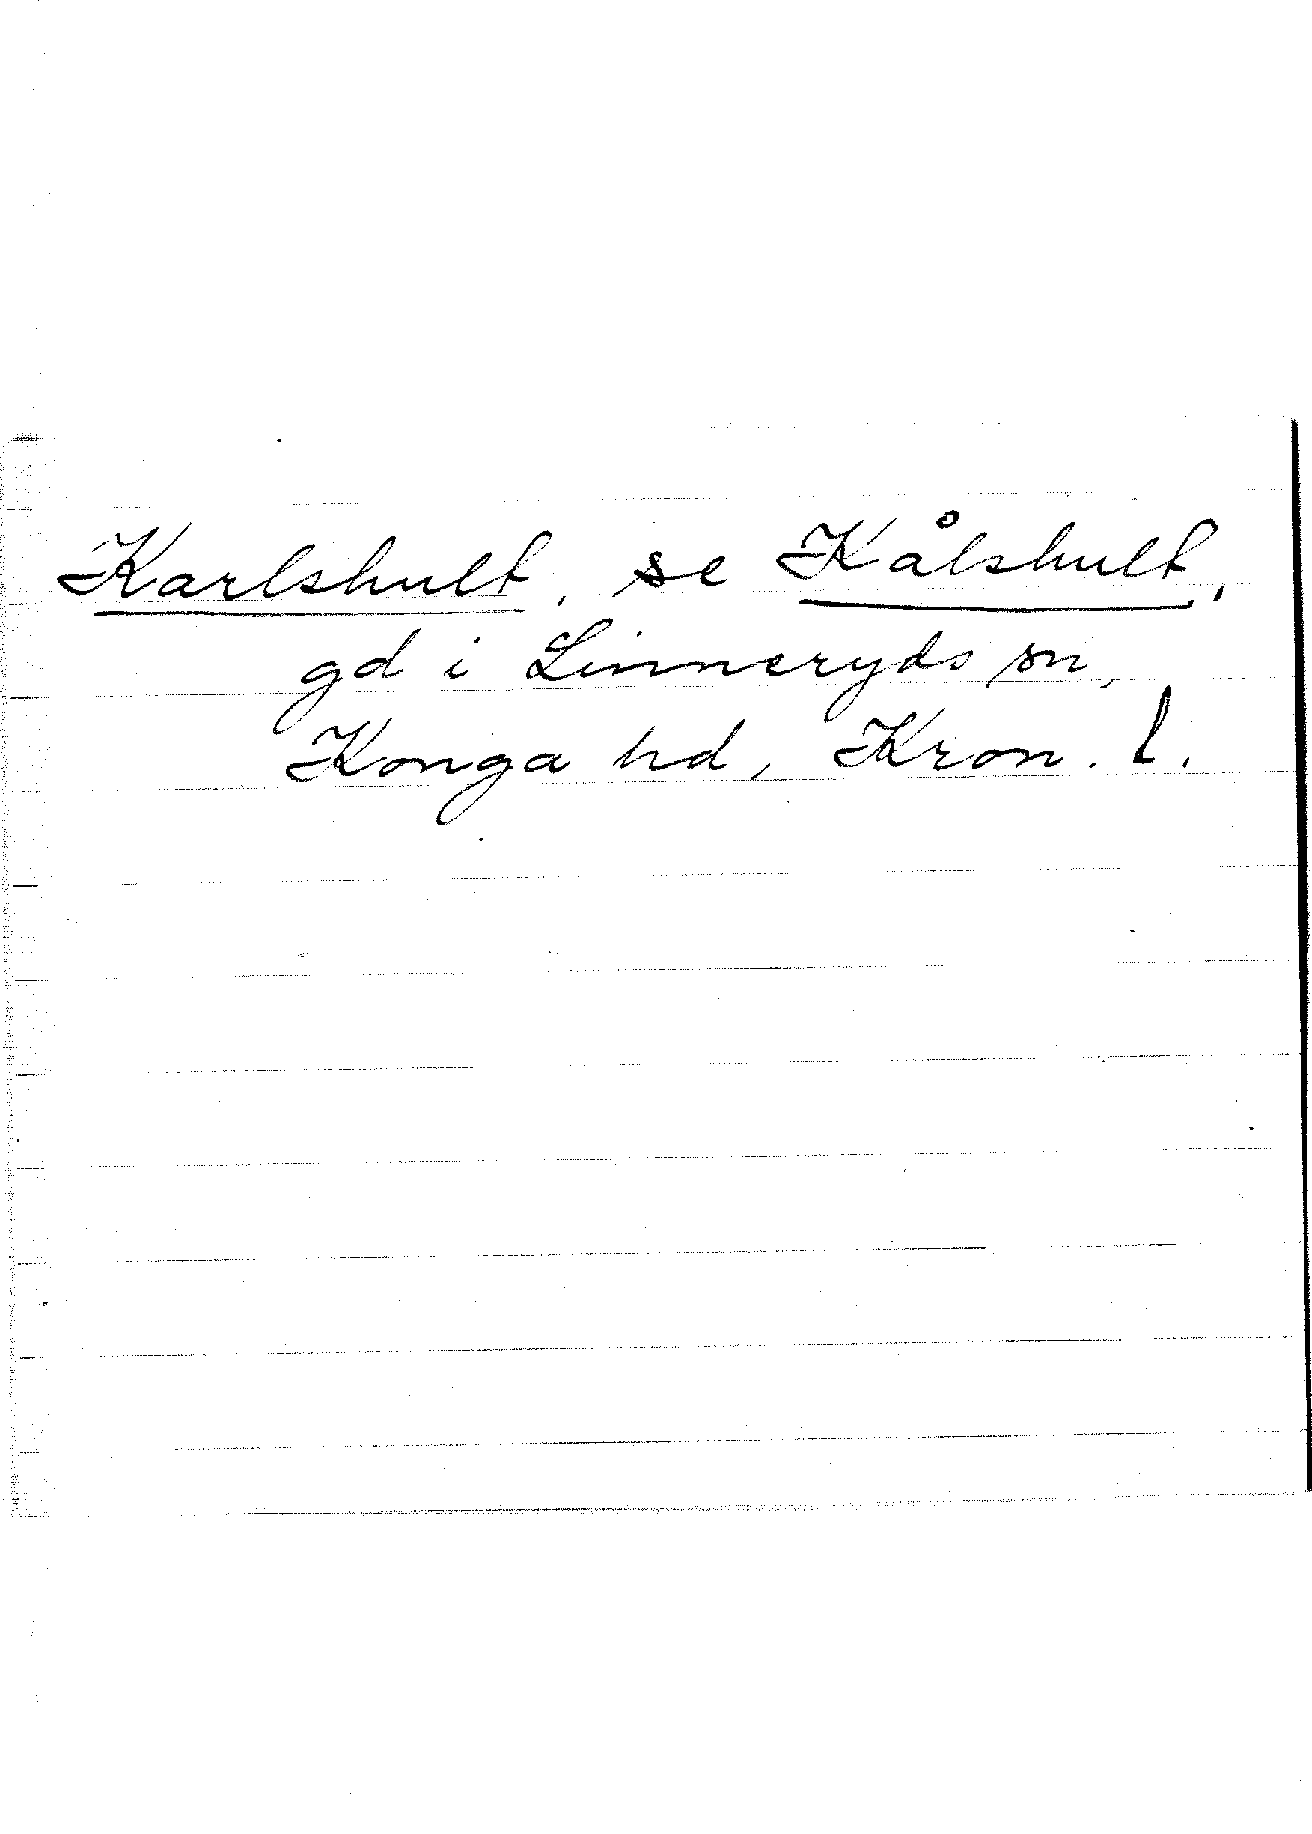 Karlshult, se Kålshult,
gd i Linneryds sn,
Konga hd, Kron. l.